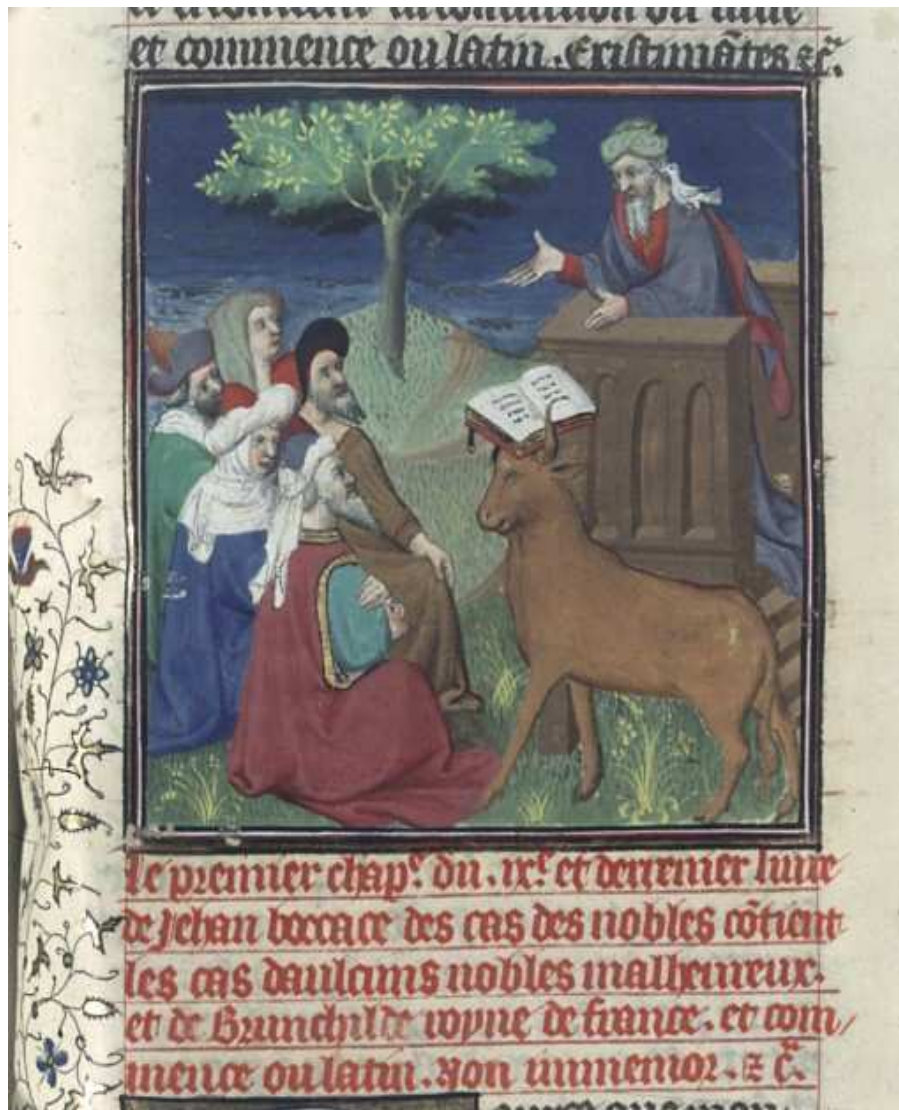 et commence ou latin. Existimãtes ⁊cᷓ.
Le premier chapᵉ. du .ixᵉ. et derrenier liure
de Jehan boccace des cas des nobles cõtient
les cas daulcuns nobles malheureux.
et de Brunchilde royne de france. et com/
mence ou latin. Non inmemor. ⁊ cᷓ.